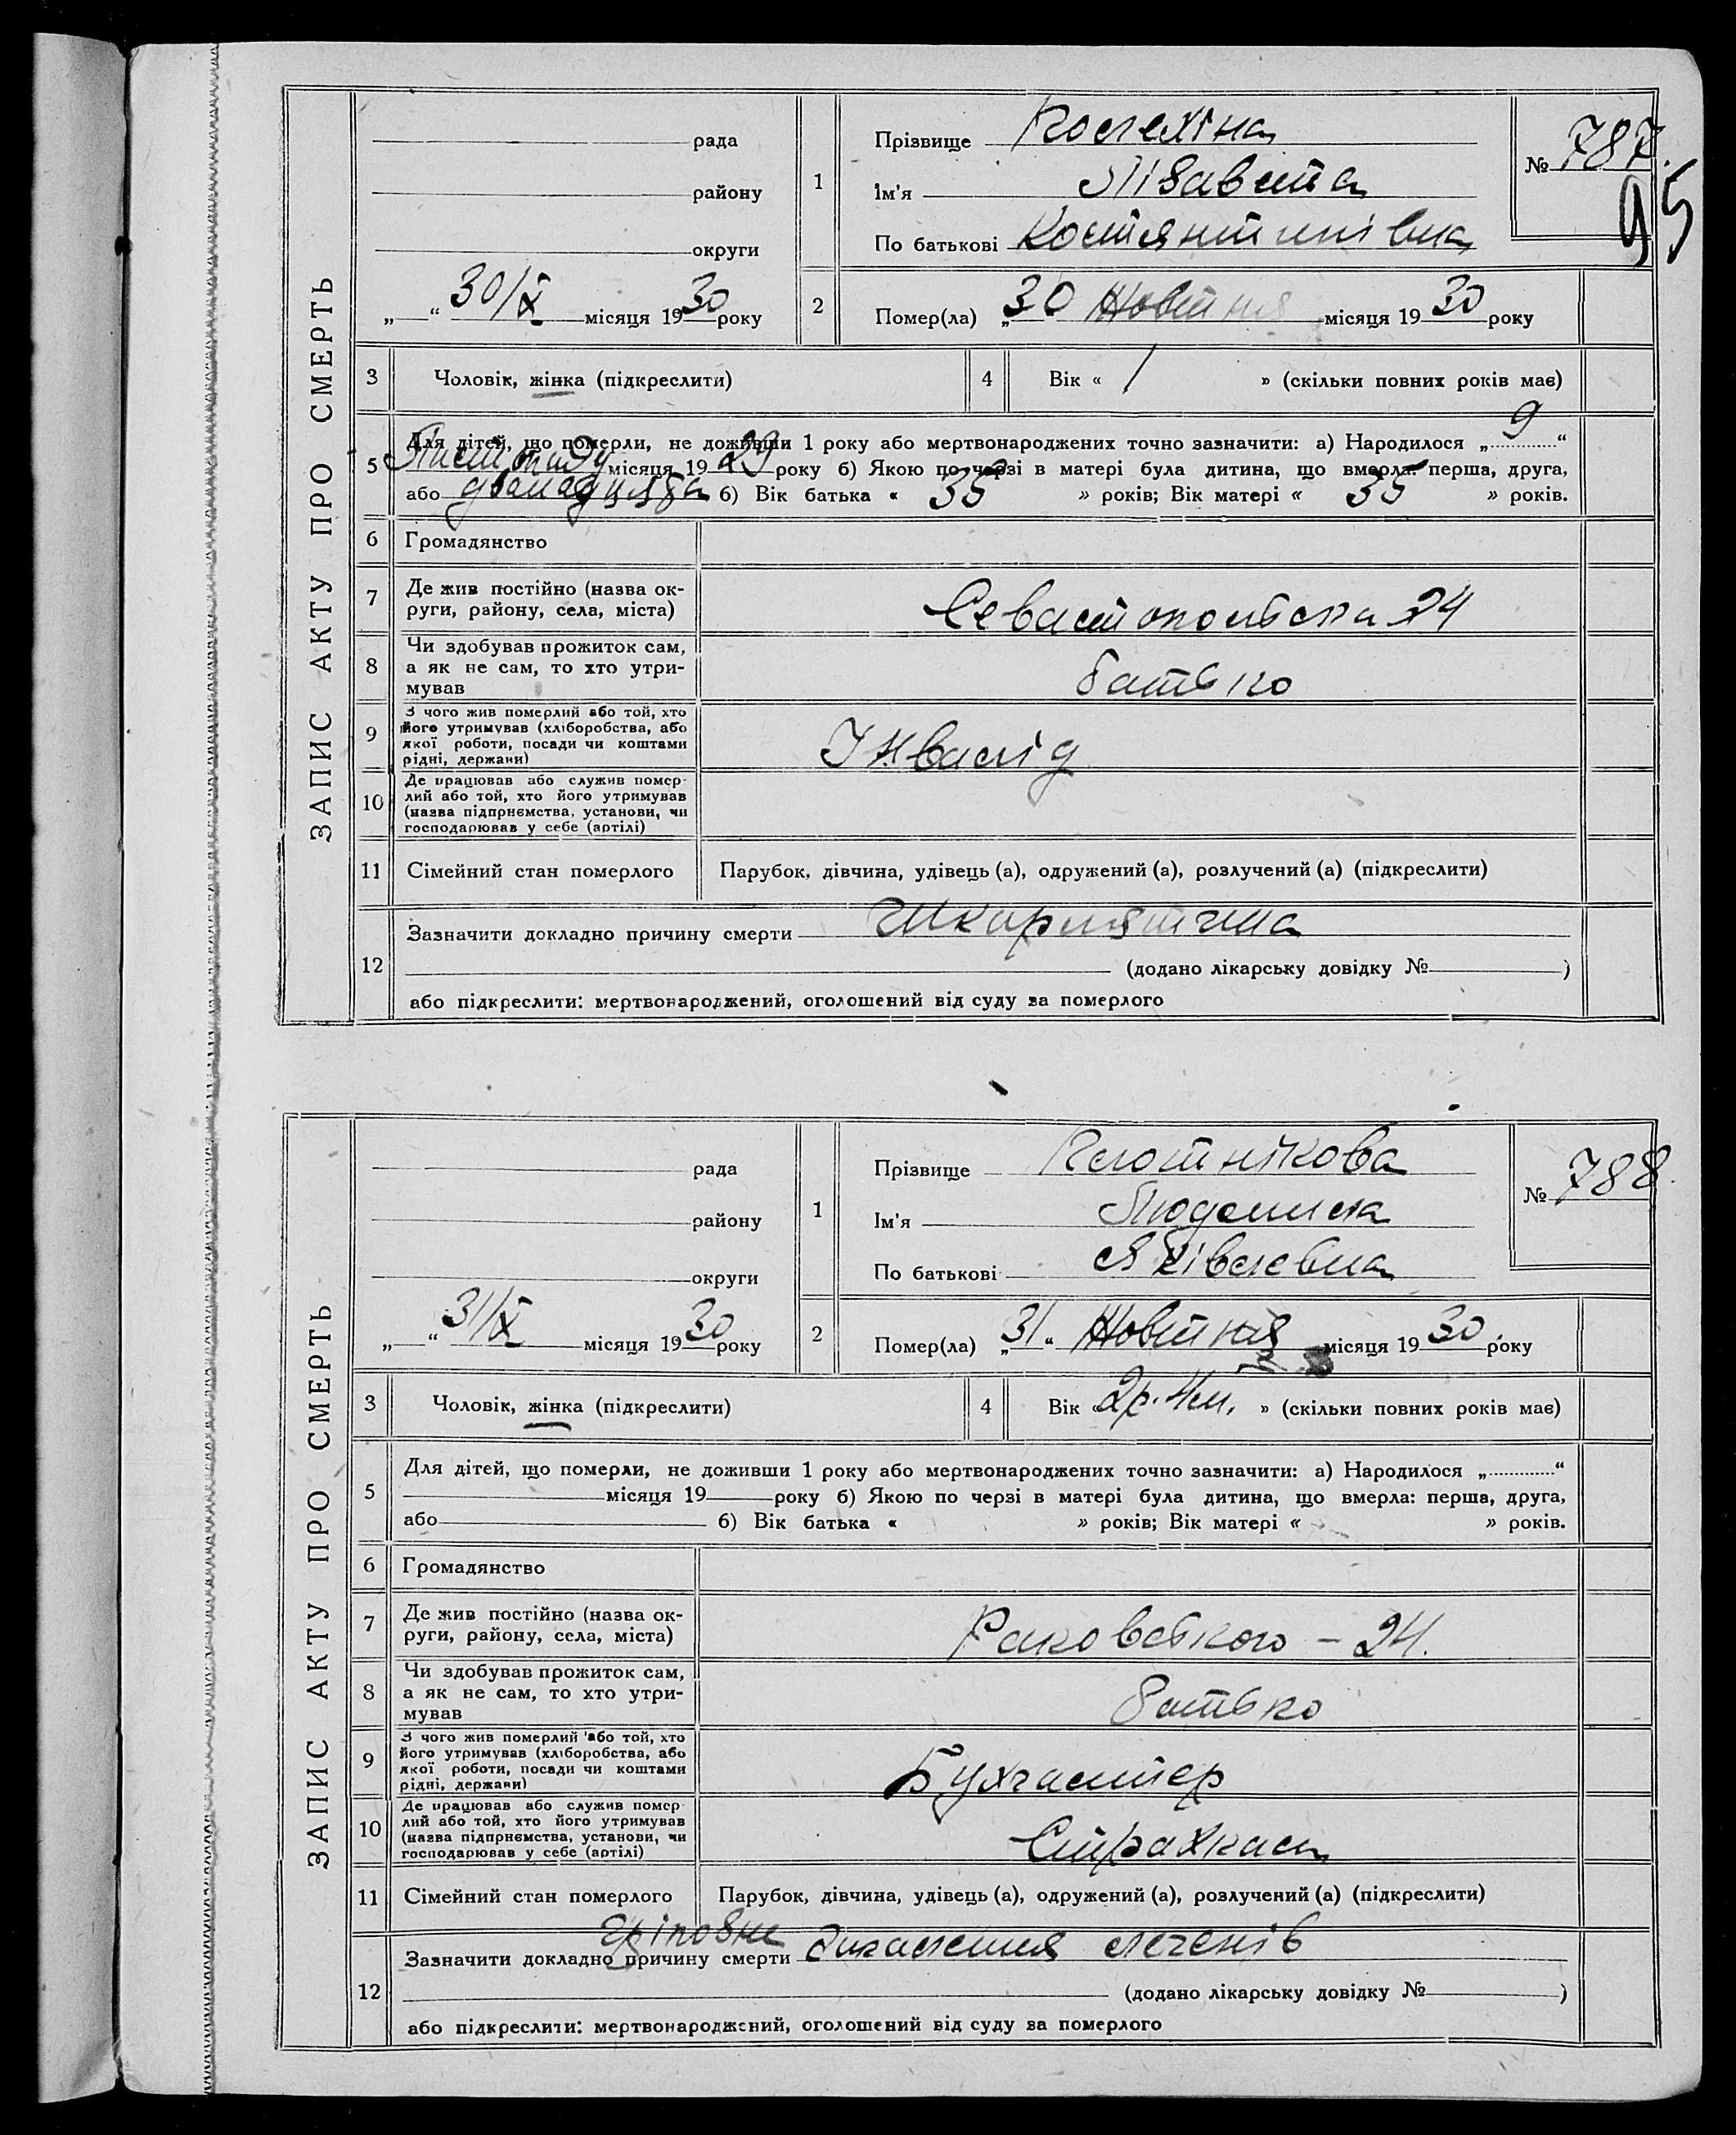 ЗАПИС АКТУ ПРО СМЕРТЬ
рада
району
округи
„ “ 30/X місяця 1930 року
1
Прізвище Кослехіна
Ім'я Лізавета
По батькові Костянтинівна
№ 787.
95
2
Помер(ла) „30 Жовтня місяця 1930 року
3 Чоловік, жінка (підкреслити)
4 Вік « 1 » (скільки повних років має)
5
Для дітей, що померли, не доживши 1 року або мертвонароджених точно зазначити: а) Народилося „ 9 “
Листопаду місяця 1929 року б) Якою по черзі в матері була дитина, що вмерла: перша, друга,
або дванадцята б) Вік батька « 35 » років; Вік матері « 35 » років.
6 Громадянство
7 Де жив постійно (назва ок-
руги, району, села, міста)
Севастопольська 24
8 Чи здобував прожиток сам,
а як не сам, то хто утри-
мував
батько
9 З чого жив померлий або той, хто
його утримував (хліборобства, або
якої роботи, посади чи коштами
рідні, держави)
Інвалід
10 Де працював або служив помер-
лий або той, хто його утримував
(назва підприємства, установи, чи
господарював у себе (артілі)
11 Сімейний стан померлого
Парубок, дівчина, удівець (а), одружений (а), розлучений (а) (підкреслити)
12
Зазначити докладно причину смерти Шкарлятина
(додано лікарську довідку № )
або підкреслити: мертвонароджений, оголошений від суду за померлого
ЗАПИС АКТУ ПРО СМЕРТЬ
рада
району
округи
„ “ 31/X місяця 1930 року
1
Прізвище Плотнікова
Ім'я Людмила
По батькові Яківлевна
№ 788.
2
Помер(ла) „31“ Жовтня місяця 1930 року
3 Чоловік, жінка (підкреслити)
4 Вік « 2р. 4м. » (скільки повних років має)
5
Для дітей, що померли, не доживши 1 року або мертвонароджених точно зазначити: а) Народилося „ “
місяця 19 року б) Якою по черзі в матері була дитина, що вмерла: перша, друга,
або б) Вік батька « » років; Вік матері « » років.
6 Громадянство
7 Де жив постійно (назва ок-
руги, району, села, міста)
Раковського – 24.
8 Чи здобував прожиток сам,
а як не сам, то хто утри-
мував
батько
9 З чого жив померлий або той, хто
його утримував (хліборобства, або
якої роботи, посади чи коштами
рідні, держави)
Бухгалтер
10 Де працював або служив помер-
лий або той, хто його утримував
(назва підприємства, установи, чи
господарював у себе (артілі)
Страхкаса
11 Сімейний стан померлого
Парубок, дівчина, удівець (а), одружений (а), розлучений (а) (підкреслити)
12
гріпозне
Зазначити докладно причину смерти запалення легенів
(додано лікарську довідку № )
або підкреслити: мертвонароджений, оголошений від суду за померлого